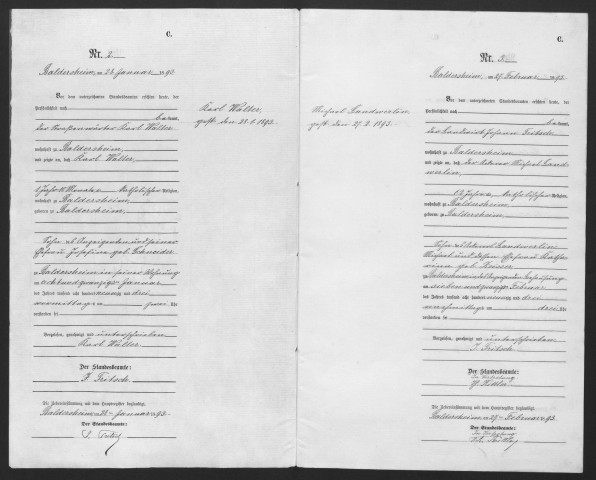 C.
Nr. 2
Baldersheim, am 28. Januar 1893.
Vor dem unterzeichneten Standesbeamten erschien heute, der
Persönlichkeit nach
bekannt,
Karl Walter
wohnhaft zu Baldersheim
und zeigte an, daß Karl Walter
Katholischer Religion,
wohnhaft zu Baldersheim
geboren zu Baldersheim,
Sohn des Anzeigenden und seiner
Ehefrau Josefina geb. Schneider
zu Baldersheim in seiner Wohnung
am acht und zwanzigsten Januar
des Jahres tausend acht hundert neunzig und drei
vormittags um zwei Uhr
verstorben sei
Vorgelesen, genehmigt und unterschrieben
Karl Walter
Der Standesbeamte:
J. Fritsch
Die Uebereinstimmung mit dem Hauptregister beglaubigt.
Baldersheim, am 28. Januar 1893.
Der Standesbeamte:
Karl Walter,
gest. den 28.1.1893.
C.
Nr. 3
Baldersheim, am 27. Februar 1893.
Vor dem unterzeichneten Standesbeamten erschien heute, der
Persönlichkeit nach
bekannt,
der Landwirth Johann Fritsch
wohnhaft zu Baldersheim
und zeigte an, daß der Ackerer Michael Land-
werlin,
Katholischer Religion,
wohnhaft zu Baldersheim
geboren zu Baldersheim,
Sohn des Landwerlin
Michael und dessen Ehefrau
geb.
zu Baldersheim in des Anzeigenden Behausung
am sieben und zwanzigsten Februar
des Jahres tausend acht hundert neunzig und drei
vormittags um drei Uhr
verstorben sei
Vorgelesen, genehmigt und unterschrieben
J. Fritsch
Der Standesbeamte:
In Vertretung
Die Uebereinstimmung mit dem Hauptregister beglaubigt.
Baldersheim, am 27. Februar 1893.
Der Standesbeamte:
In Vertretung
Michael Landwerlin,
gest. den 27.2.1893.